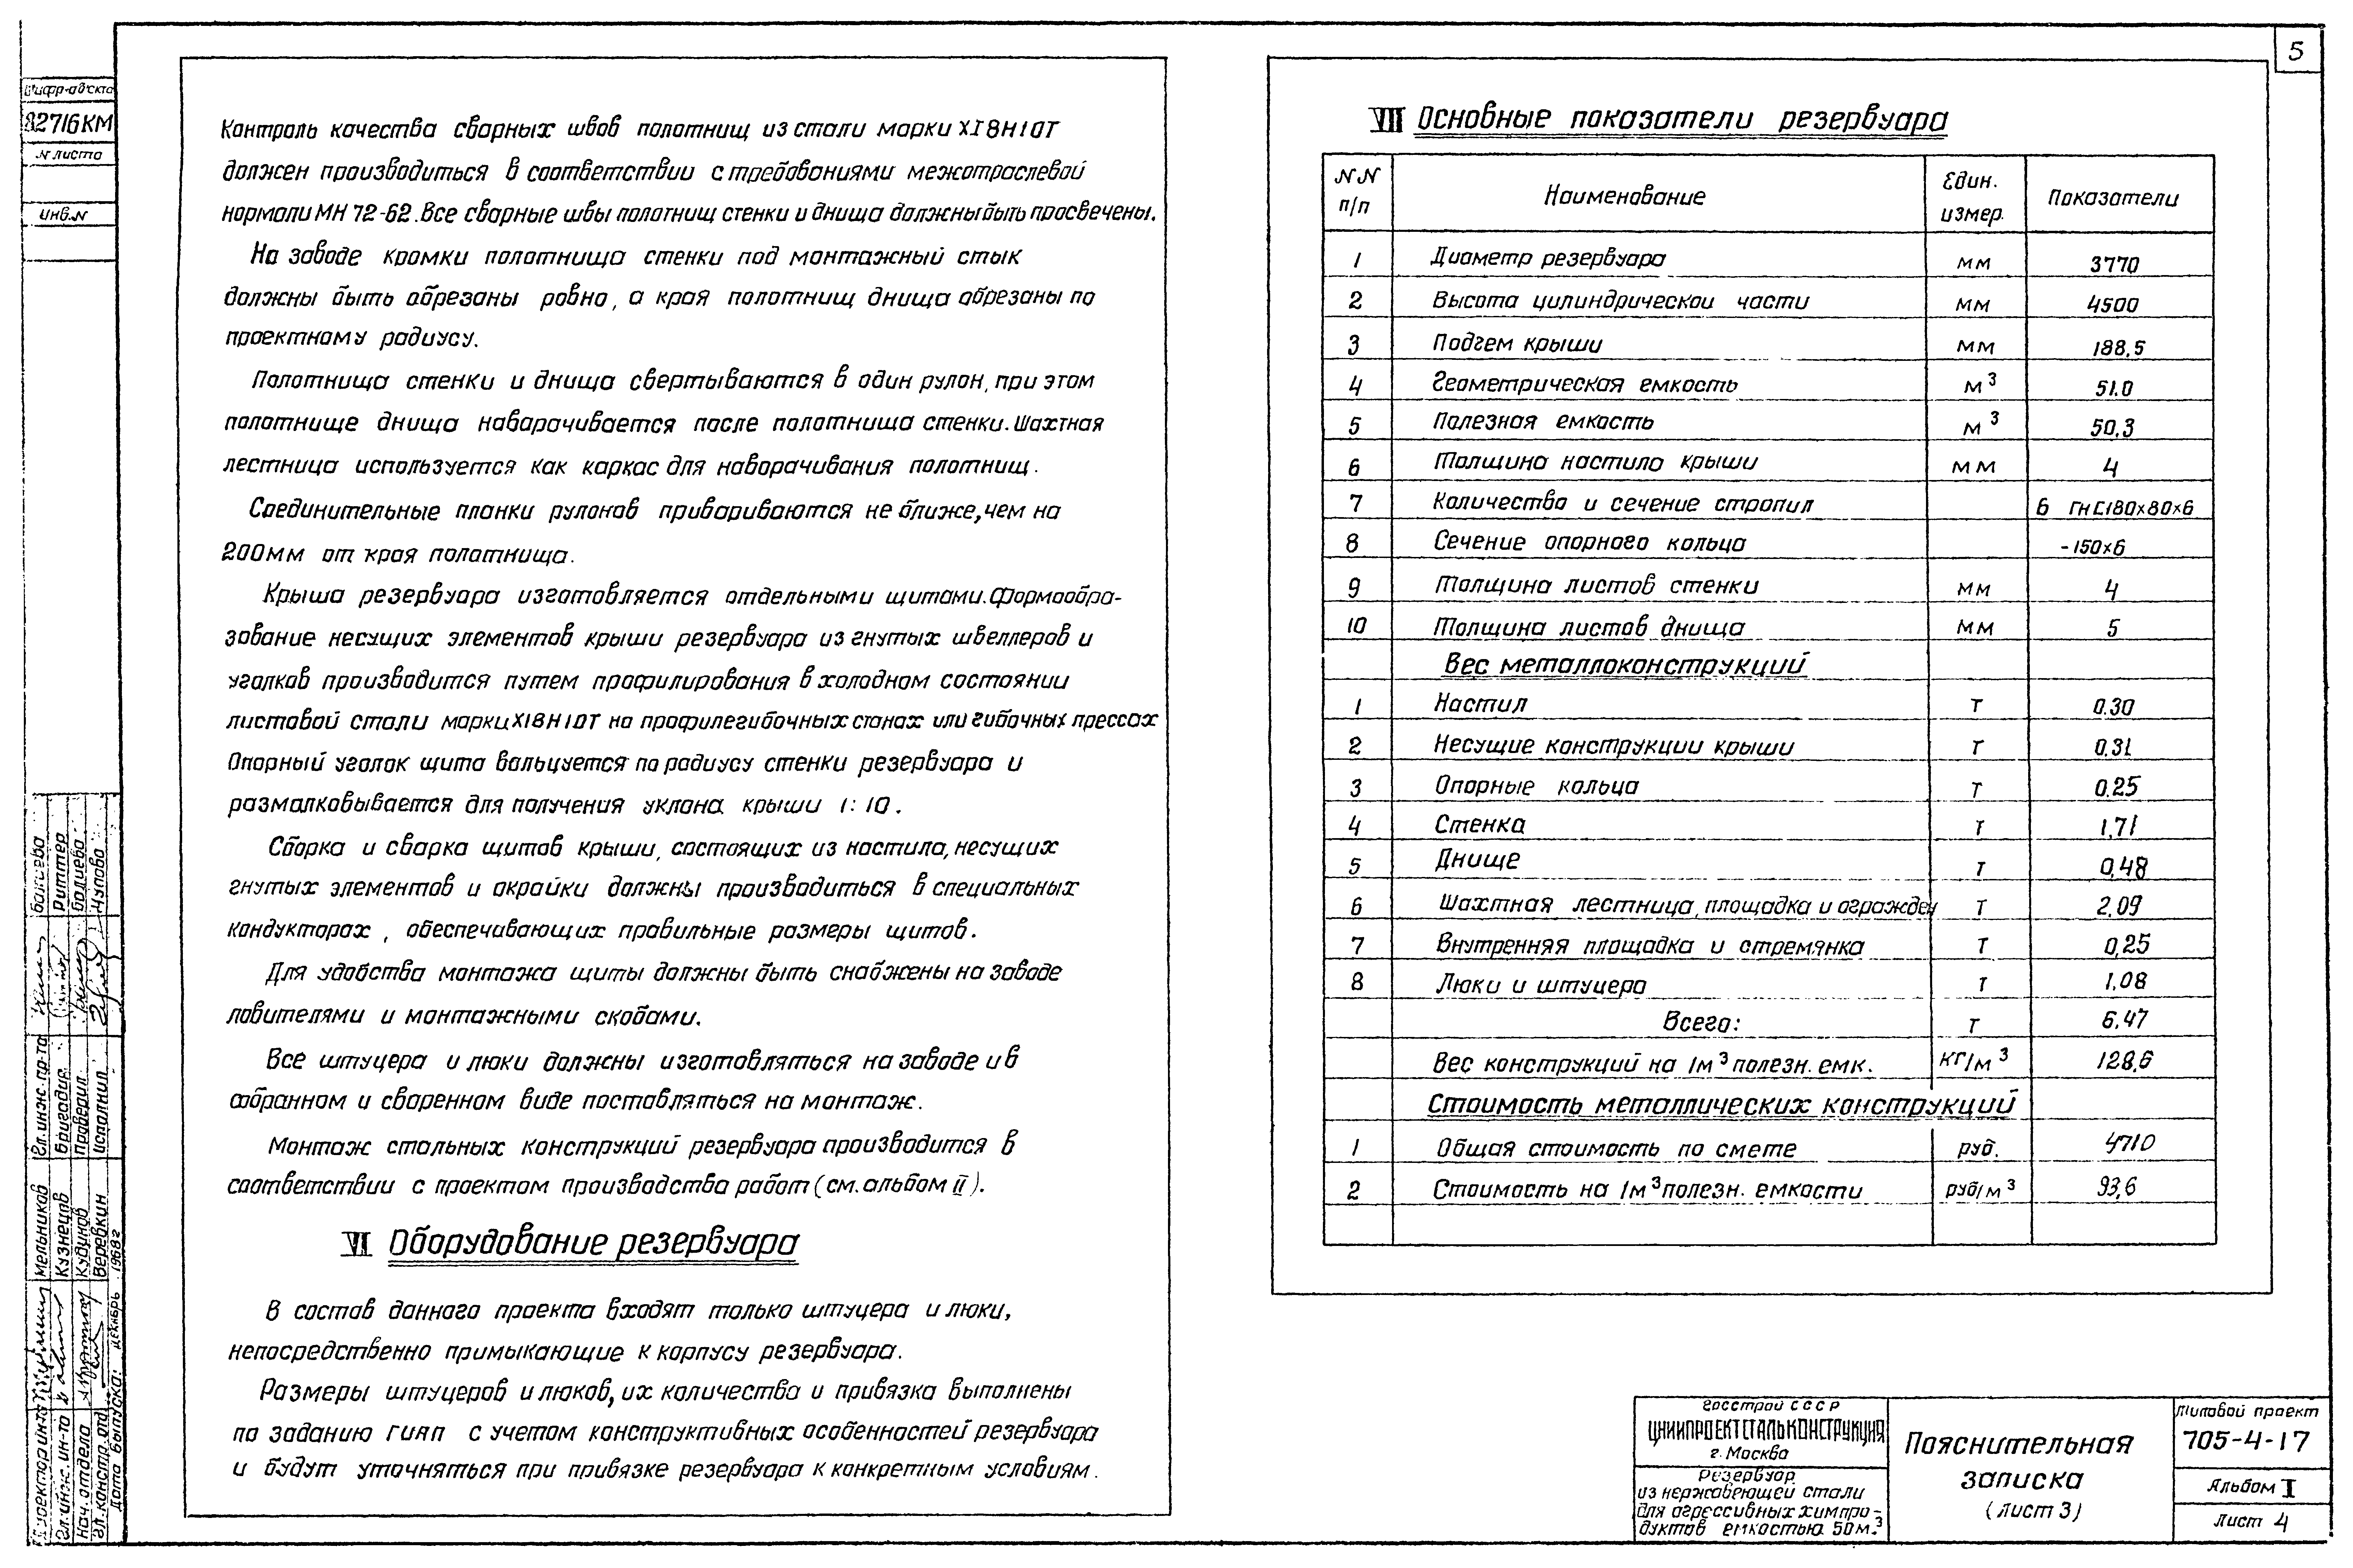 5
Шифр объекта
82716КМ
N листа
Инв.N
Контроль качества сварных швов полотнищ из стали марки Х18Н10Т
должен производиться в соответствии с требованиями межотраслевой
нормали МН 72-62. Все сварные швы полотнищ стенки и днища должны быть просвечены.
На заводе кромки полотнища стенки под монтажный стык
должны быть обрезаны ровно, а края полотнищ днища обрезаны по
проектному радиусу.
Полотнища стенки и днища свертываются в один рулон, при этом
полотнище днища наворачивается после полотнища стенки. Шахтная
лестница используется как каркас для наворачивания полотнищ.
Соединительные планки рулонов привариваются не ближе, чем на
200мм от края полотнища.
Крыша резервуара изготовляется отдельными щитами. Формообра-
зование несущих элементов крыши резервуара из гнутых швеллеров и
уголков производится путем профилирования в холодном состоянии
листовой стали марки Х18Н10Т на профилегибочных станах или гибочных прессах
Опорный уголок щита вальцуется по радиусу стенки резервуара и
размалковывается для получения уклона крыши 1:10.
Сборка и сварка щитов крыши, состоящих из настила, несущих
гнутых элементов и окрайки должны производиться в специальных
кондукторах, обеспечивающих правильные размеры щитов.
Для удобства монтажа щиты должны быть снабжены на заводе
ловителями и монтажными скобами.
Все штуцера и люки должны изготовляться на заводе и в
собранном и сваренном виде поставляться на монтаж.
Монтаж стальных конструкций резервуара производится в
соответствии с проектом производства работ (см. альбом II).
VI Оборудование резервуара
В состав данного проекта входят только штуцера и люки,
непосредственно примыкающие к корпусу резервуара.
Размеры штуцеров и люков, их количества и привязка выполнены
по заданию ГИАП с учетом конструктивных особенностей резервуара
и будут уточняться при привязке резервуара к конкретным условиям.
VII Основные показатели резервуара
NN п/п Наименование Един. измер. Показатели
1 Диаметр резервуара мм 3770
2 Высота цилиндрической части мм 4500
3 Подъем крыши мм 188,5
4 Геометрическая емкость м³ 51.0
5 Полезная емкость м³ 50,3
6 Толщина настила крыши мм 4
7 Количества и сечение стропил 6 ГН[180×80×6
8 Сечение опорного кольца -150×6
9 Толщина листов стенки мм 4
10 Толщина листов днища мм 5
Вес металлоконструкций
1 Настил т 0.30
2 Несущие конструкции крыши т 0,31
3 Опорные кольца т 0.25
4 Стенка т 1,71
5 Днище т 0,48
6 Шахтная лестница, площадка и огражден т 2,09
7 Внутренняя площадка и стремянка т 0,25
8 Люки и штуцера т 1,08
Всего: т 6.47
Вес конструкций на 1м³ полезн. емк. кг/м³ 128,6
Стоимость металлических конструкций
1 Общая стоимость по смете руб. 4710
2 Стоимость на 1м³ полезн. емкости руб/м³ 93,6
Госстрой СССР
ЦНИИПРОЕКТСТАЛЬКОНСТРУКЦИЯ
г. Москва
Резервуар
из нержавеющей стали
для агрессивных химпро-
дуктов емкостью 50м.³
Пояснительная
записка
(лист 3)
Типовой проект
705-4-17
Альбом I
Лист 4
Директор ин-та Мельников
Гл. инж. ин-та Кузнецов
Нач. отдела Кудинов
Гл. констр. отд. Веревкин
Дата выпуска: декабрь 1968г
Гл. инж. пр-та
Бригадир Риттер
Проверил
Исполнил